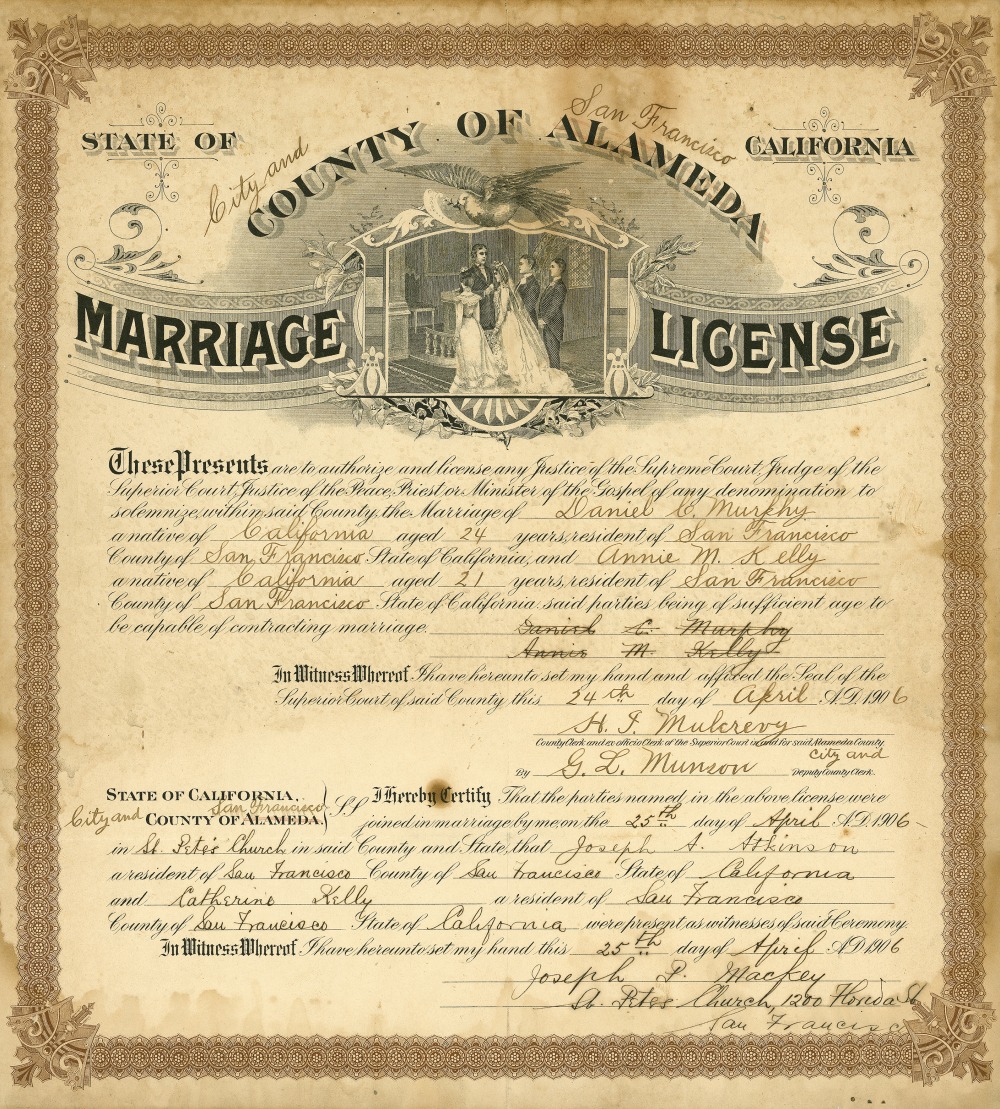 STATE OF
City and COUNTY OF ALAMEDA San Francisco
CALIFORNIA
MARRIAGE LICENSE
These Presents are to authorize and license any Justice of the Supreme Court, Judge of the
Superior Court, Justice of the Peace, Priest or Minister of the Gospel of any denomination to
solemnize, within said County, the Marriage of Daniel C. Murphy
a native of California aged 24 years, resident of San Francisco
County of San Francisco State of California, and Annie M. Kelly
a native of California aged 21 years, resident of San Francisco
County of San Francisco State of California said parties being of sufficient age to
be capable of contracting marriage. Daniel C. Murphy
Annie M. Kelly
In Witness Whereof I have hereunto set my hand and affixed the Seal of the
Superior Court of said County this 24th day of April A.D. 1906
H. F. Mulcrevy
County Clerk and ex officio Clerk of the Superior Court in and for said Alameda County
city and
By G. L. Munson Deputy County Clerk.
STATE OF CALIFORNIA,
City and San Francisco COUNTY OF ALAMEDA. } SS
I Hereby Certify That the parties named, in the above license were
joined in marriage by me, on the 25th day of April A.D. 1906
in St. Peter's Church in said County and State, that Joseph A. Atkinson
a resident of San Francisco County of San Francisco State of California
and Catherine Kelly a resident of San Francisco
County of San Francisco State of California were present as witnesses of said Ceremony.
In Witness Whereof I have hereunto set my hand this 25th day of April A.D. 1906
Joseph P. Mackey
St. Peter's Church, 1200 Florida St
San Francisco